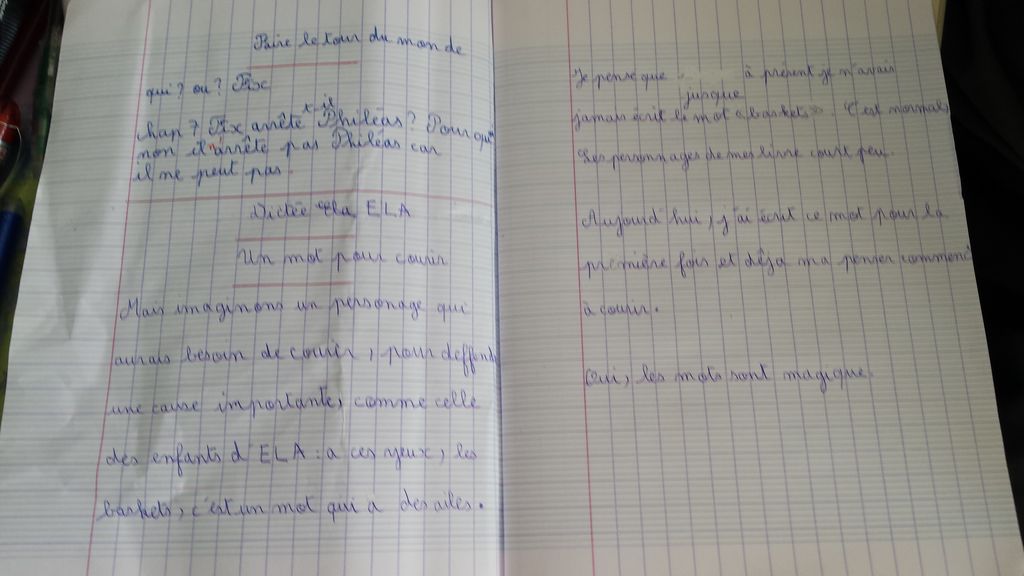 Faire le tour du monde
qui ? ou ? Fix
-t-il
chap 7 Fix arrête Philéas ? Pourquoi
non il arrête pas Philéas car
il ne peut pas.
Dictée ELA
Un mot pour courir
Mais imaginons un personage qui
aurais besoin de courir, pour deffendre
une cause importante, comme celle
des enfants d'ELA : a ces yeux, les
baskets, c'est un mot qui a des ailes.
Je pense que jusque à présent je n'avais
jamais écrit le mot « baskets ». C'est normal,
Les personnages de mes livre court peu.
Aujourd'hui, j'ai écrit ce mot pour la
première fois et déja ma penser commence
à courir.
Oui, les mots sont magique.